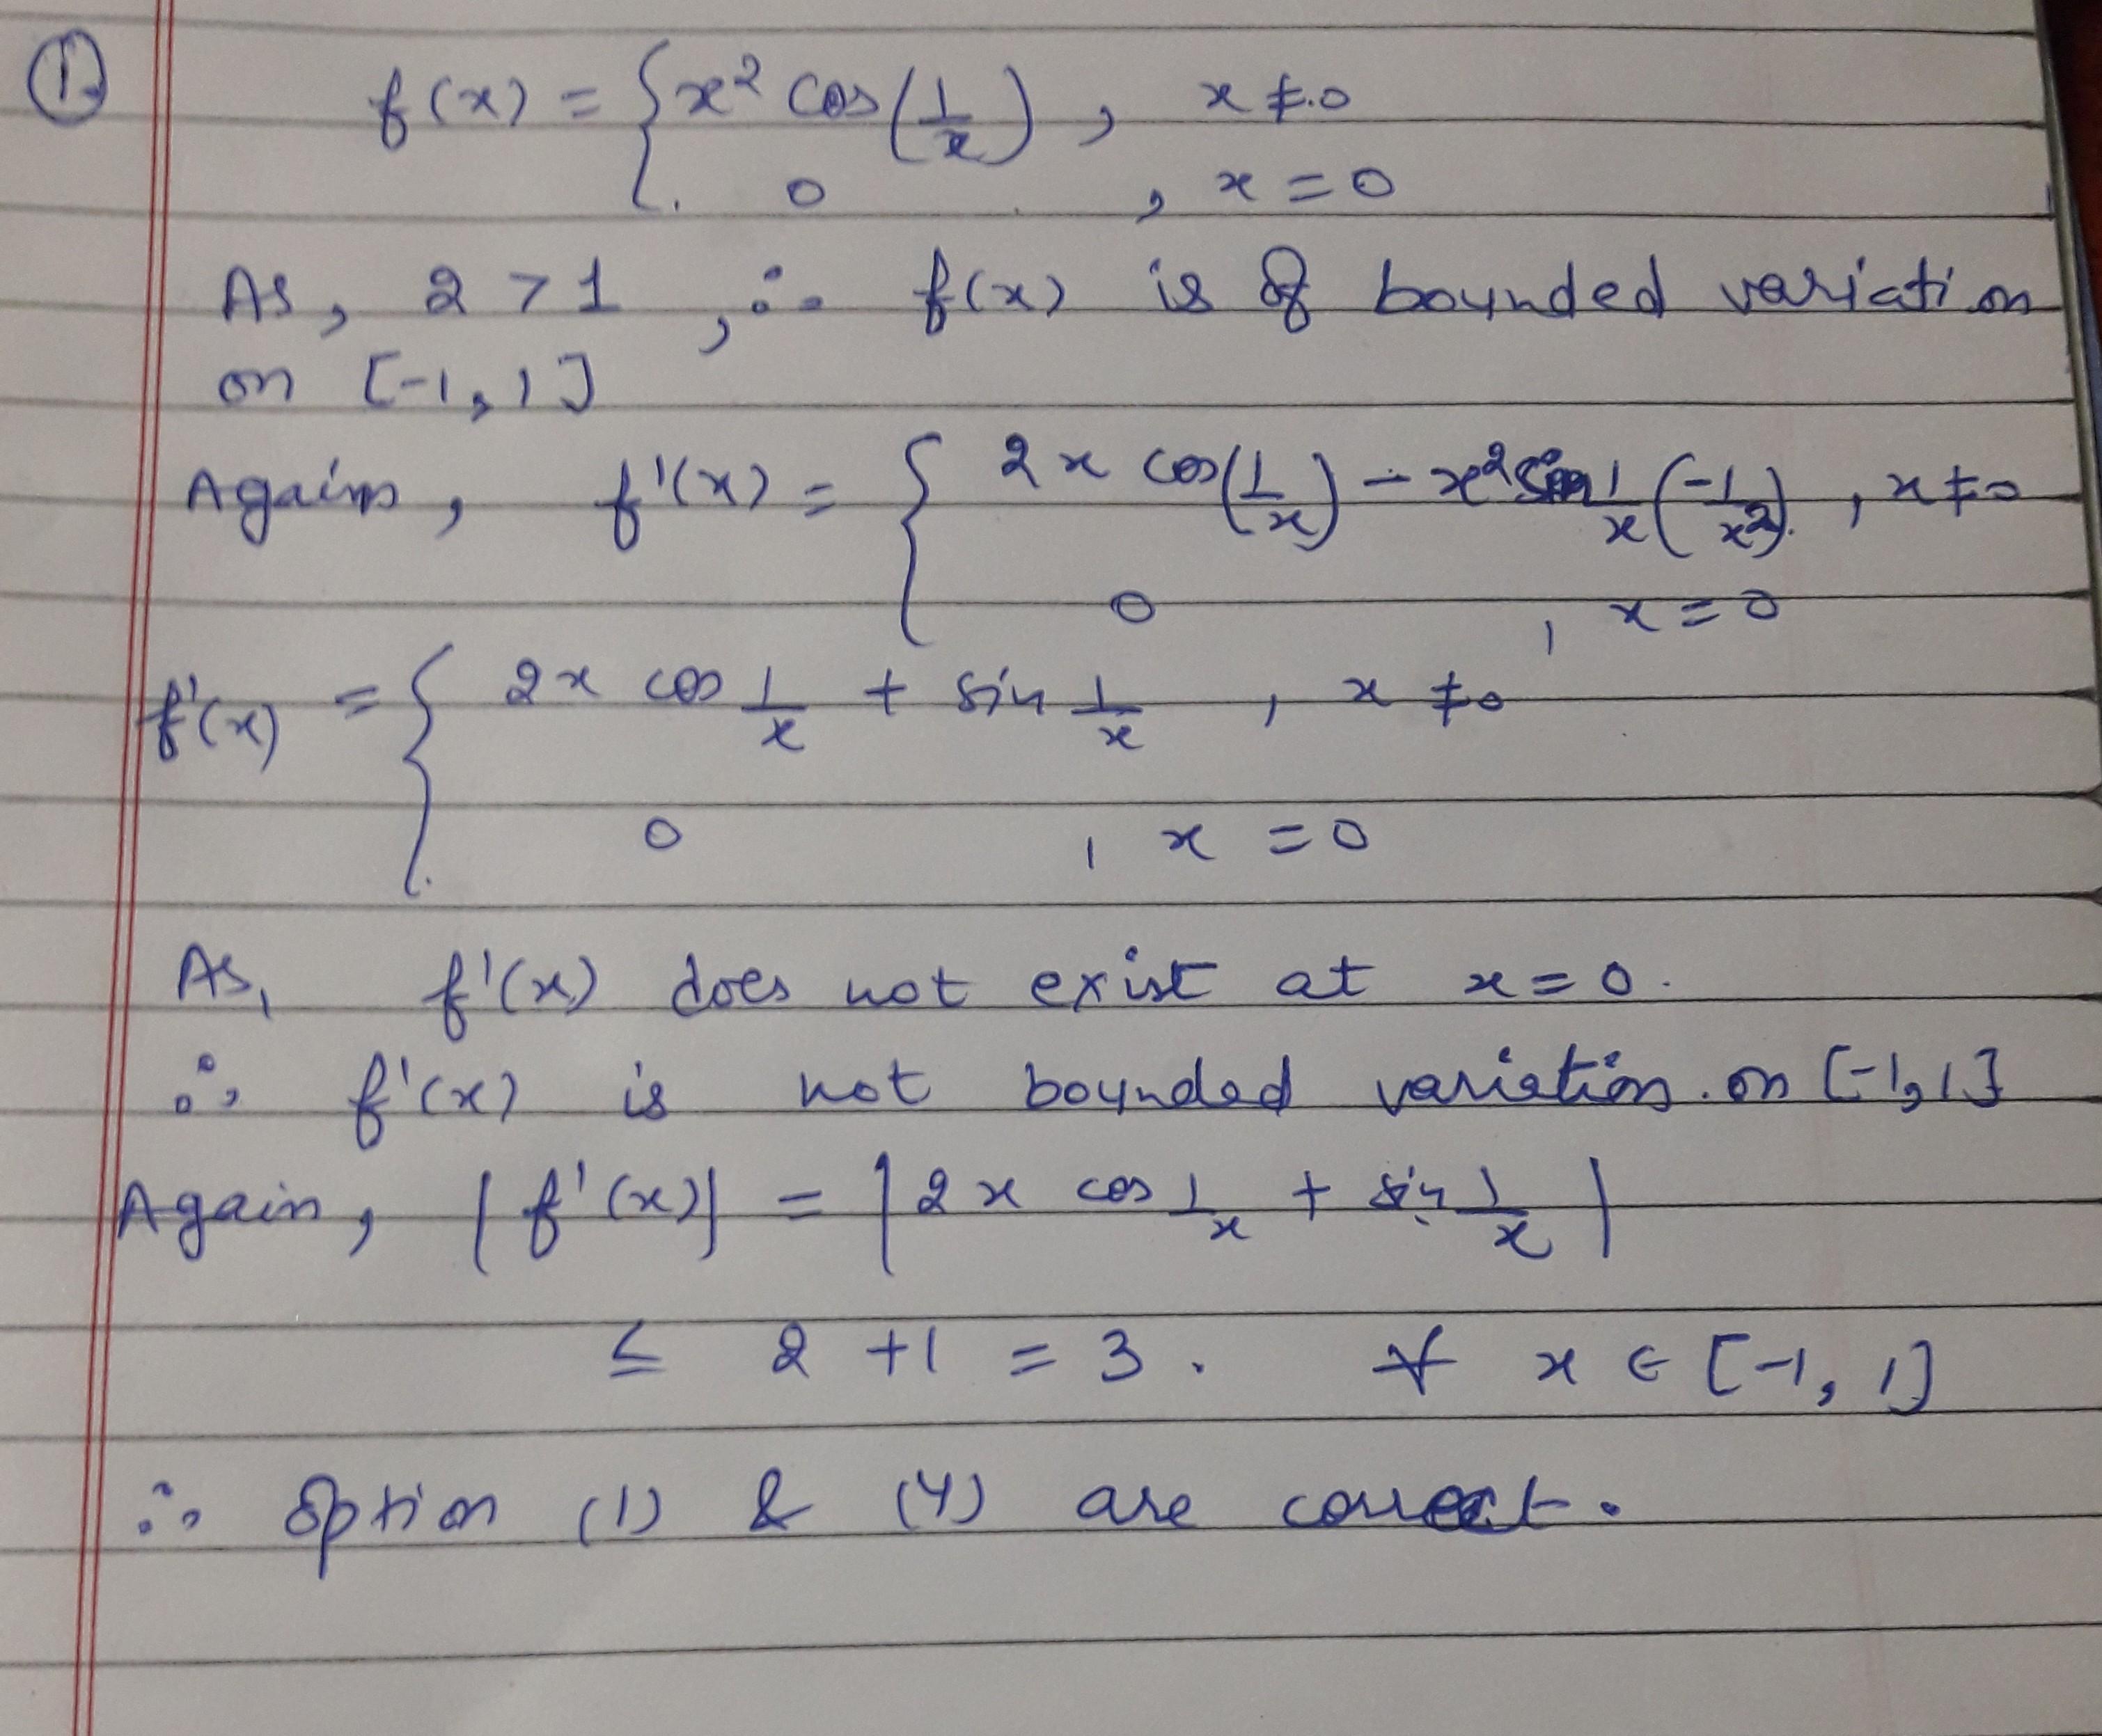 ①
f(x) = { x² cos(1/x) , x ≠ 0
0 , x = 0
As, 2 > 1 , ∴ f(x) is of bounded variation
on [-1, 1]
Again, f'(x) = { 2x cos(1/x) - x² sin 1/x (-1/x²) , x ≠ 0
0 , x = 0
f'(x) = { 2x cos 1/x + sin 1/x , x ≠ 0
0 , x = 0
As, f'(x) does not exist at x = 0.
∴ f'(x) is not bounded variation on [-1, 1]
Again, |f'(x)| = |2x cos 1/x + sin 1/x|
≤ 2 + 1 = 3 . ∀ x ∈ [-1, 1]
∴ option (1) & (4) are correct.